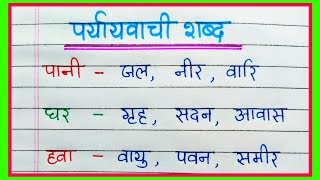 पर्यायवाची शब्द
पानी - जल, नीर, वारि
घर - गृह, सदन, आवास
हवा - वायु, पवन, समीर